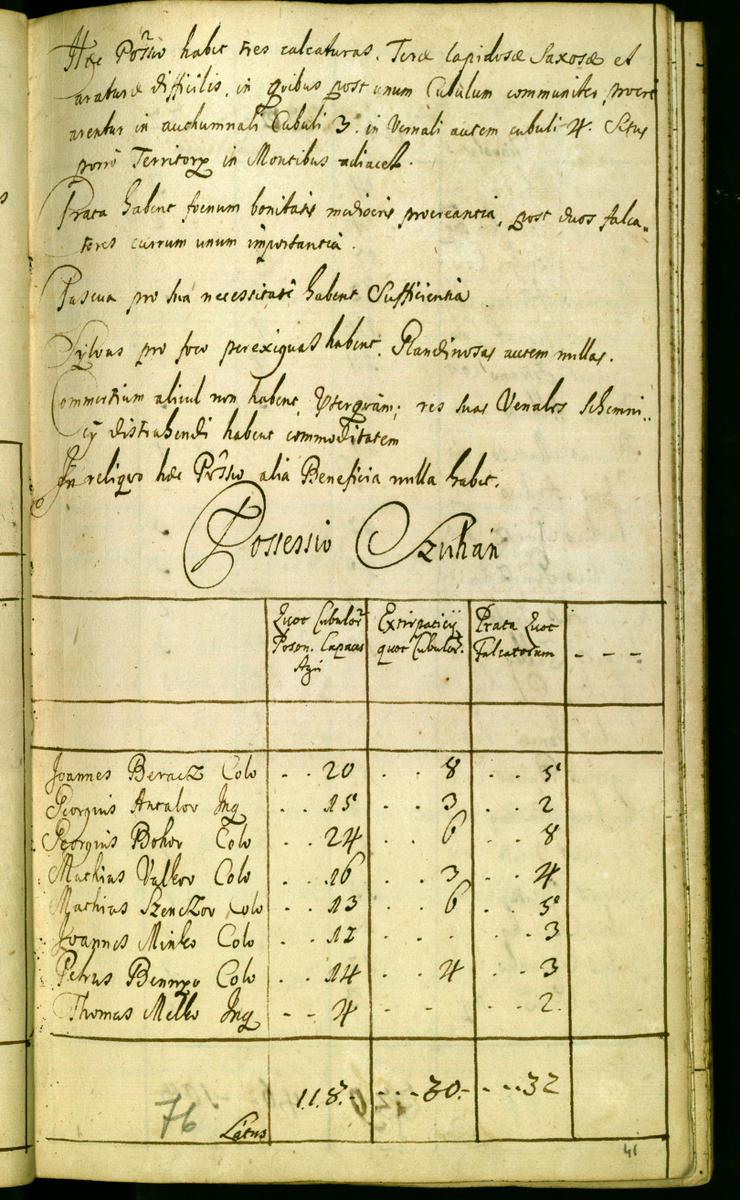 Hæc Possio habet tres calcaturas. Teræ lapidosæ Saxosæ et
araturæ difficilis, in quibus post unum Cubulum communiter procre
arentur in authumnali Cubuli 3. in Vernali autem cubuli 4. Situs
porro Territory in Montibus adiacet.
Prata habent foenum bonitatis mediocris procreantia, post duos falca„
tores currum unum importantia.
Pascua pro sua necessitate habent Sufficientia
Sylvas pro foco perexiguas habent. Glandinosas autem nullas.
Commertium aliud non habent, Uterquam; res suas Venales Schemni„
cy distrahendi habent commoditatem
In reliquo hæc Possio alia Beneficia nulla habet.
Possessio Szuhan
Quot Cubulor Poson. Capaces Agri
Extirpaticy quot Cubulor.
Prata Quot Falcatorum
- - -
Joannes Beracz Colo . . 20 . . 8 . . 5
Georgius Antalov Inq . . 15 . . 3 . . 2
Georgius Bohov Colo . . 24 . . 6 . . 8
Mathias Valkov Colo . . 16 . . 3 . . 4
Mathias Szenczov Colo . . 13 . . 6 . . 5
Joannes Minko Colo . . 12 . . . . . 3
Petrus Colo . . 14 . . 4 . . 3
Thomas Melko Inq - - 4 - - . . 2.
118.- - - - 30.- - - - 32
76
Latus
41